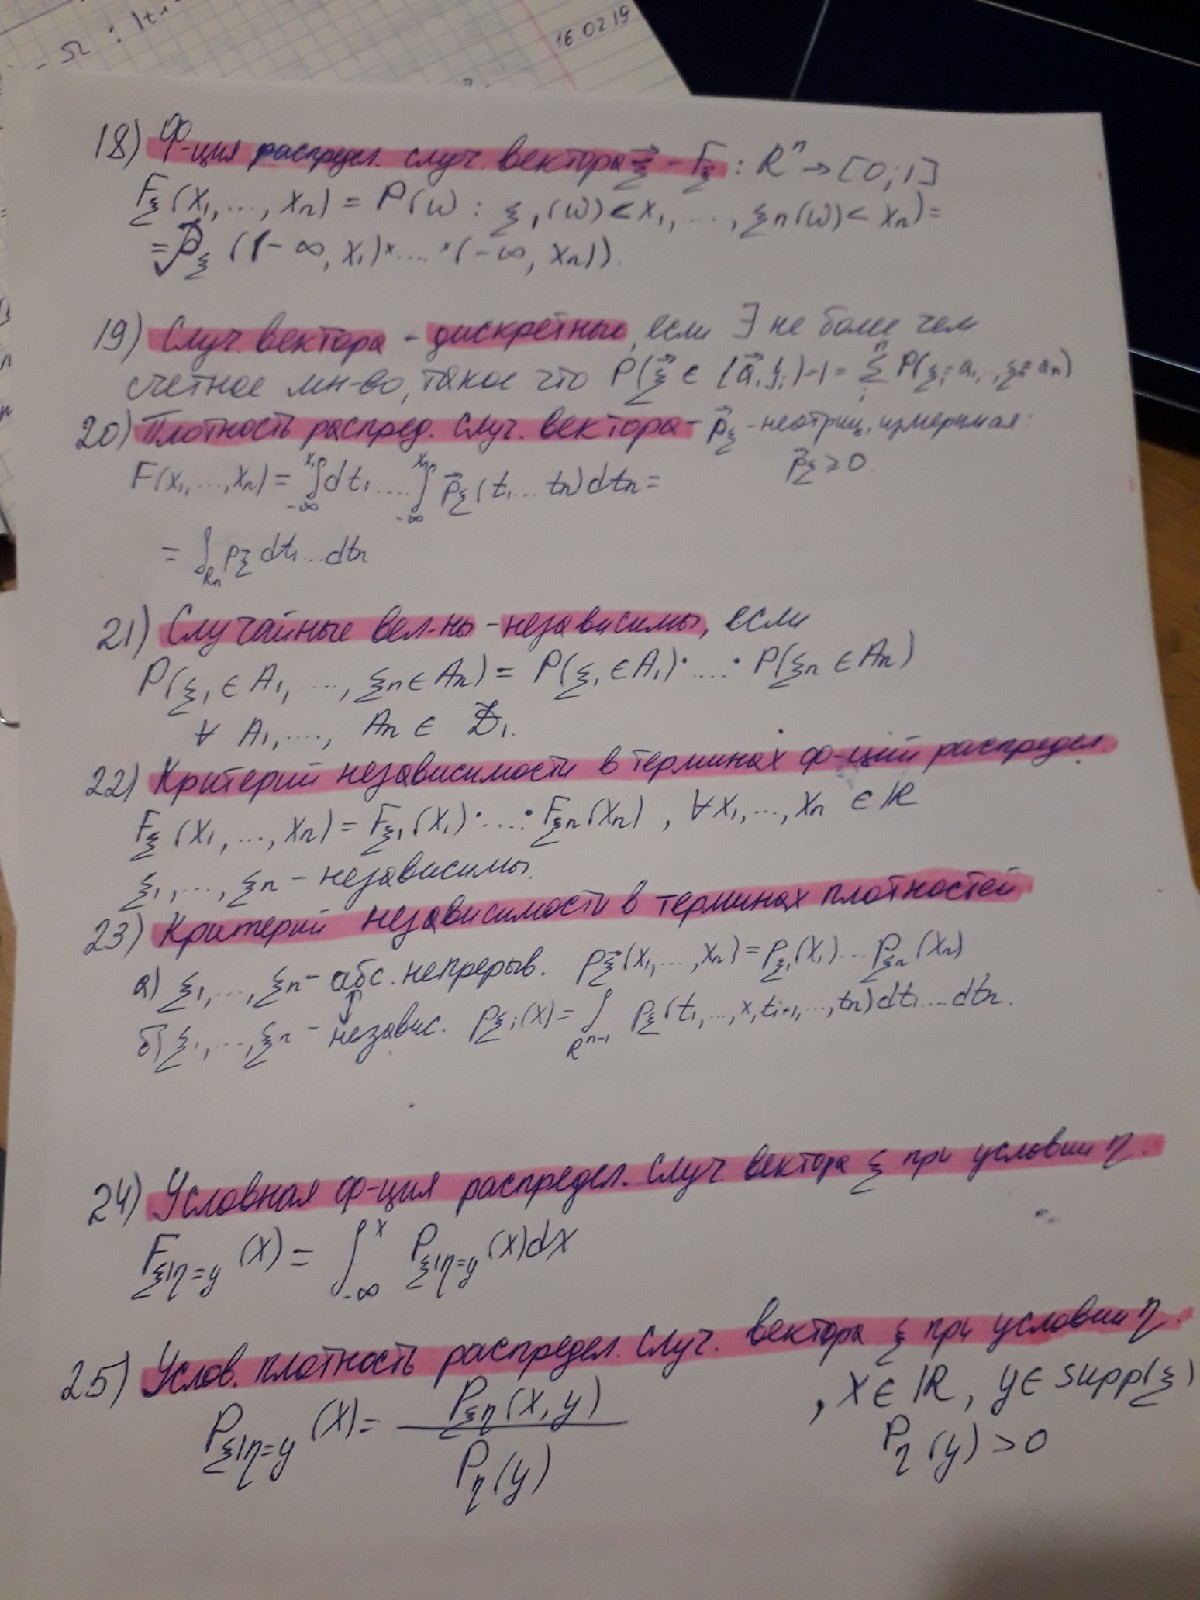 16.02.19
18) Ф-ция распредел. случ. вектора ξ⃗ - F_ξ⃗ : R^n → [0;1]
F_ξ⃗ (x₁, ..., xₙ) = P(ω : ξ₁(ω) < x₁, ..., ξₙ(ω) < xₙ) =
= P_ξ⃗ ((-∞, x₁) × ... × (-∞, xₙ)).
19) Случ. вектора - дискретные, если ∃ не более чем
счетное мн-во, такое что P(ξ⃗ ∈ {a⃗ᵢ}ᵢ) = 1 = Σ P(ξ₁=a₁, ..., ξₙ=aₙ)
20) Плотность распред. случ. вектора - p_ξ⃗ - неотриц. измеримая:
p_ξ⃗ ≥ 0.
F(x₁, ..., xₙ) = ∫_{-∞}^{x₁} dt₁ ... ∫_{-∞}^{xₙ} p_ξ⃗ (t₁ ... tₙ) dtₙ =
= ∫_{Rₙ} p_ξ⃗ dt₁ ... dtₙ
21) Случайные вел-ны - независимы, если
P(ξ₁ ∈ A₁, ..., ξₙ ∈ Aₙ) = P(ξ₁ ∈ A₁) · ... · P(ξₙ ∈ Aₙ)
∀ A₁, ..., Aₙ ∈
22) Критерий независимости в терминах ф-ций распредел.
F_ξ⃗ (x₁, ..., xₙ) = F_ξ₁ (x₁) · ... · F_ξₙ (xₙ) , ∀ x₁, ..., xₙ ∈ ℝ
ξ₁, ..., ξₙ - независимы.
23) Критерий независимости в терминах плотностей
а) ξ₁, ..., ξₙ - абс. непрерыв. p_ξ⃗ (x₁, ..., xₙ) = p_ξ₁ (x₁) ... p_ξₙ (xₙ)
⇕
б) ξ₁, ..., ξₙ - независ. p_ξᵢ (x) = ∫_{R^{n-1}} p_ξ⃗ (t₁, ..., x, t_{i+1}, ..., tₙ) dt₁ ... dtₙ.
24) Условная ф-ция распредел. случ. вектора ξ при условии η.
F_{ξ|η=y} (x) = ∫_{-∞}^{x} P_{ξ|η=y} (x) dx
25) Услов. плотность распредел. случ. вектора ξ при условии η.
P_{ξ|η=y} (x) = P_{ξη} (x, y) / P_η (y) , x ∈ ℝ, y ∈ supp(ξ)
P_η (y) > 0